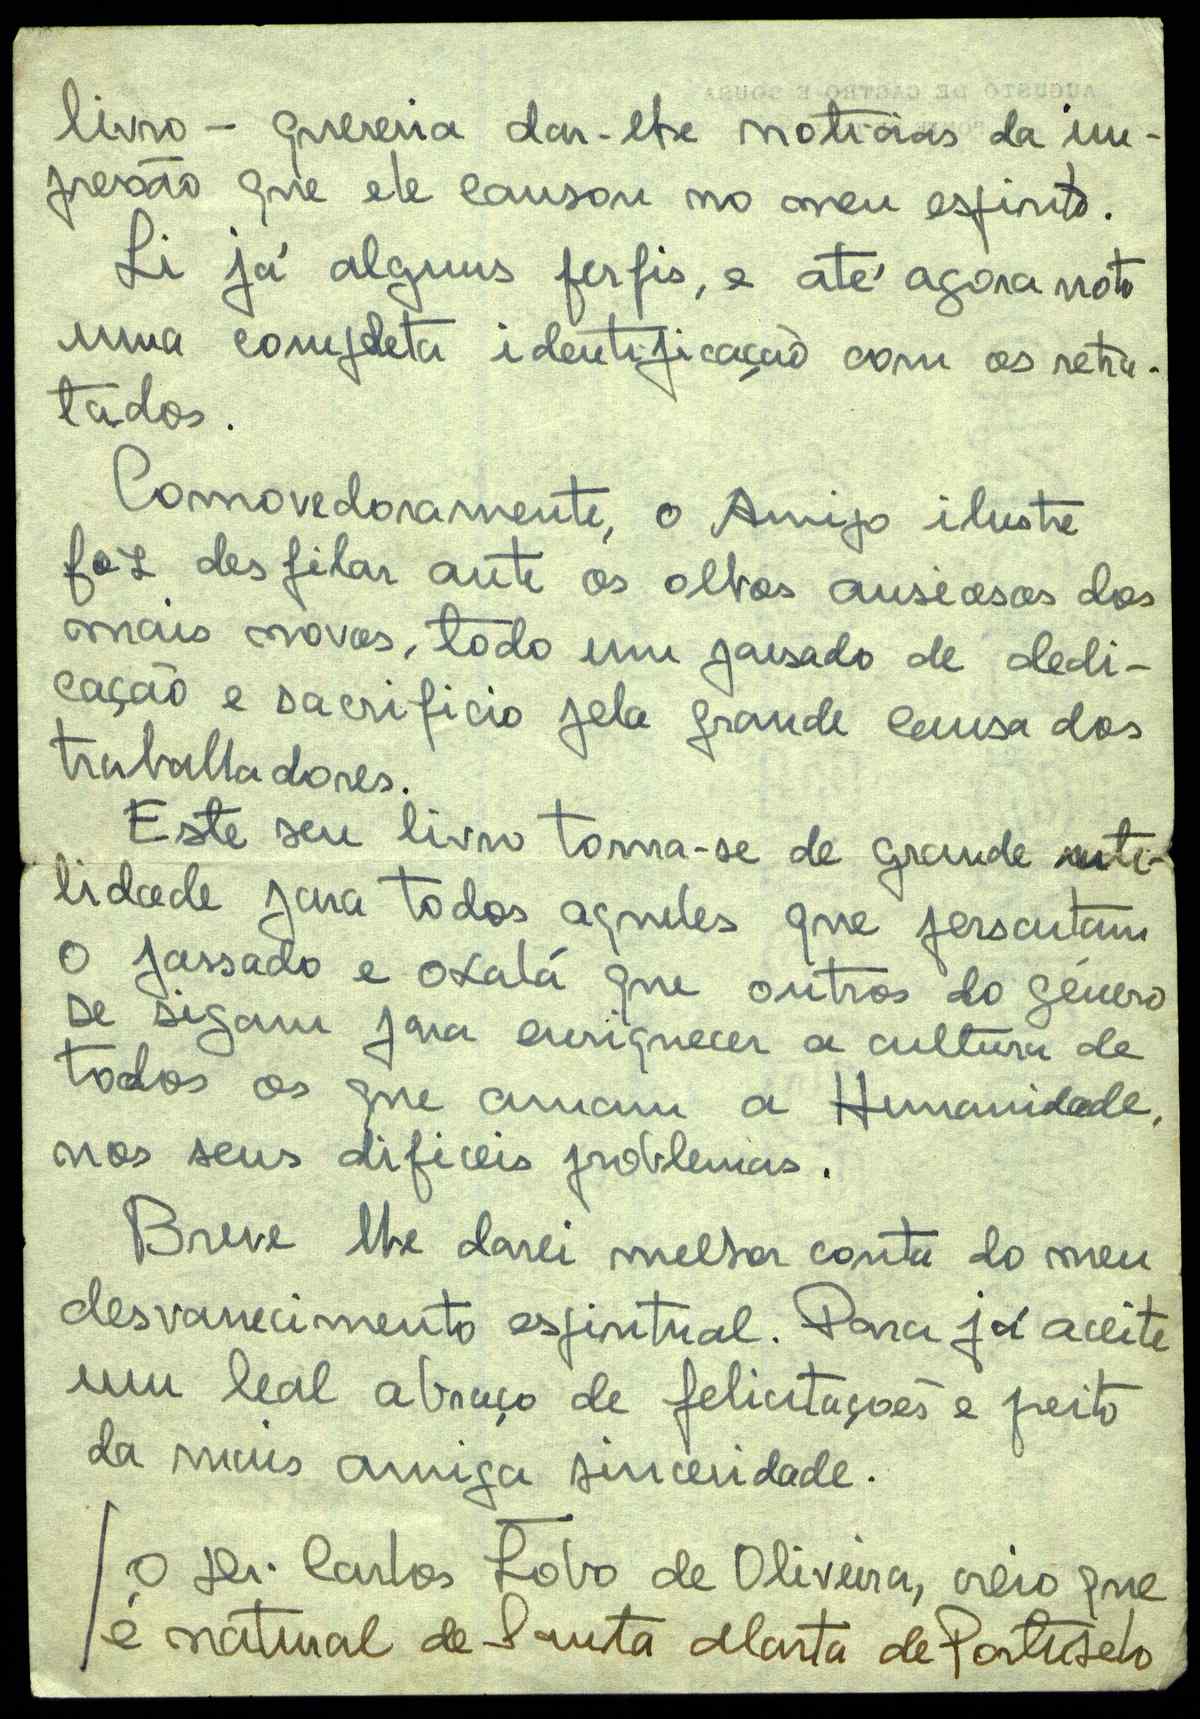 livro – quereria dar-lhe notícias da im-
pressão que ele causou no meu espírito.
Li já alguns perfis, e até agora noto
uma completa identificação com os retra-
tados.
Comovedoramente, o Amigo ilustre
faz desfilar ante os olhos ansiosos dos
mais novos, todo um passado de dedi-
cação e sacrificio pela grande causa dos
trabalhadores.
Este seu livro torna-se de grande uti-
lidade para todos aqueles que perscutam
o passado e oxalá que outros do género
se sigam para enriquecer a cultura de
todos os que amam a Humanidade,
nos seus dificeis problemas.
Breve lhe darei melhor conta do meu
desvanecimento espiritual. Para já aceite
um leal abraço de felicitações e preito
da mais amiga sinceridade.
O sr. Carlos Lobo de Oliveira, creio que
é natural de Santa Marta de Portuselo
AUGUSTO DE CASTRO E SOUSA